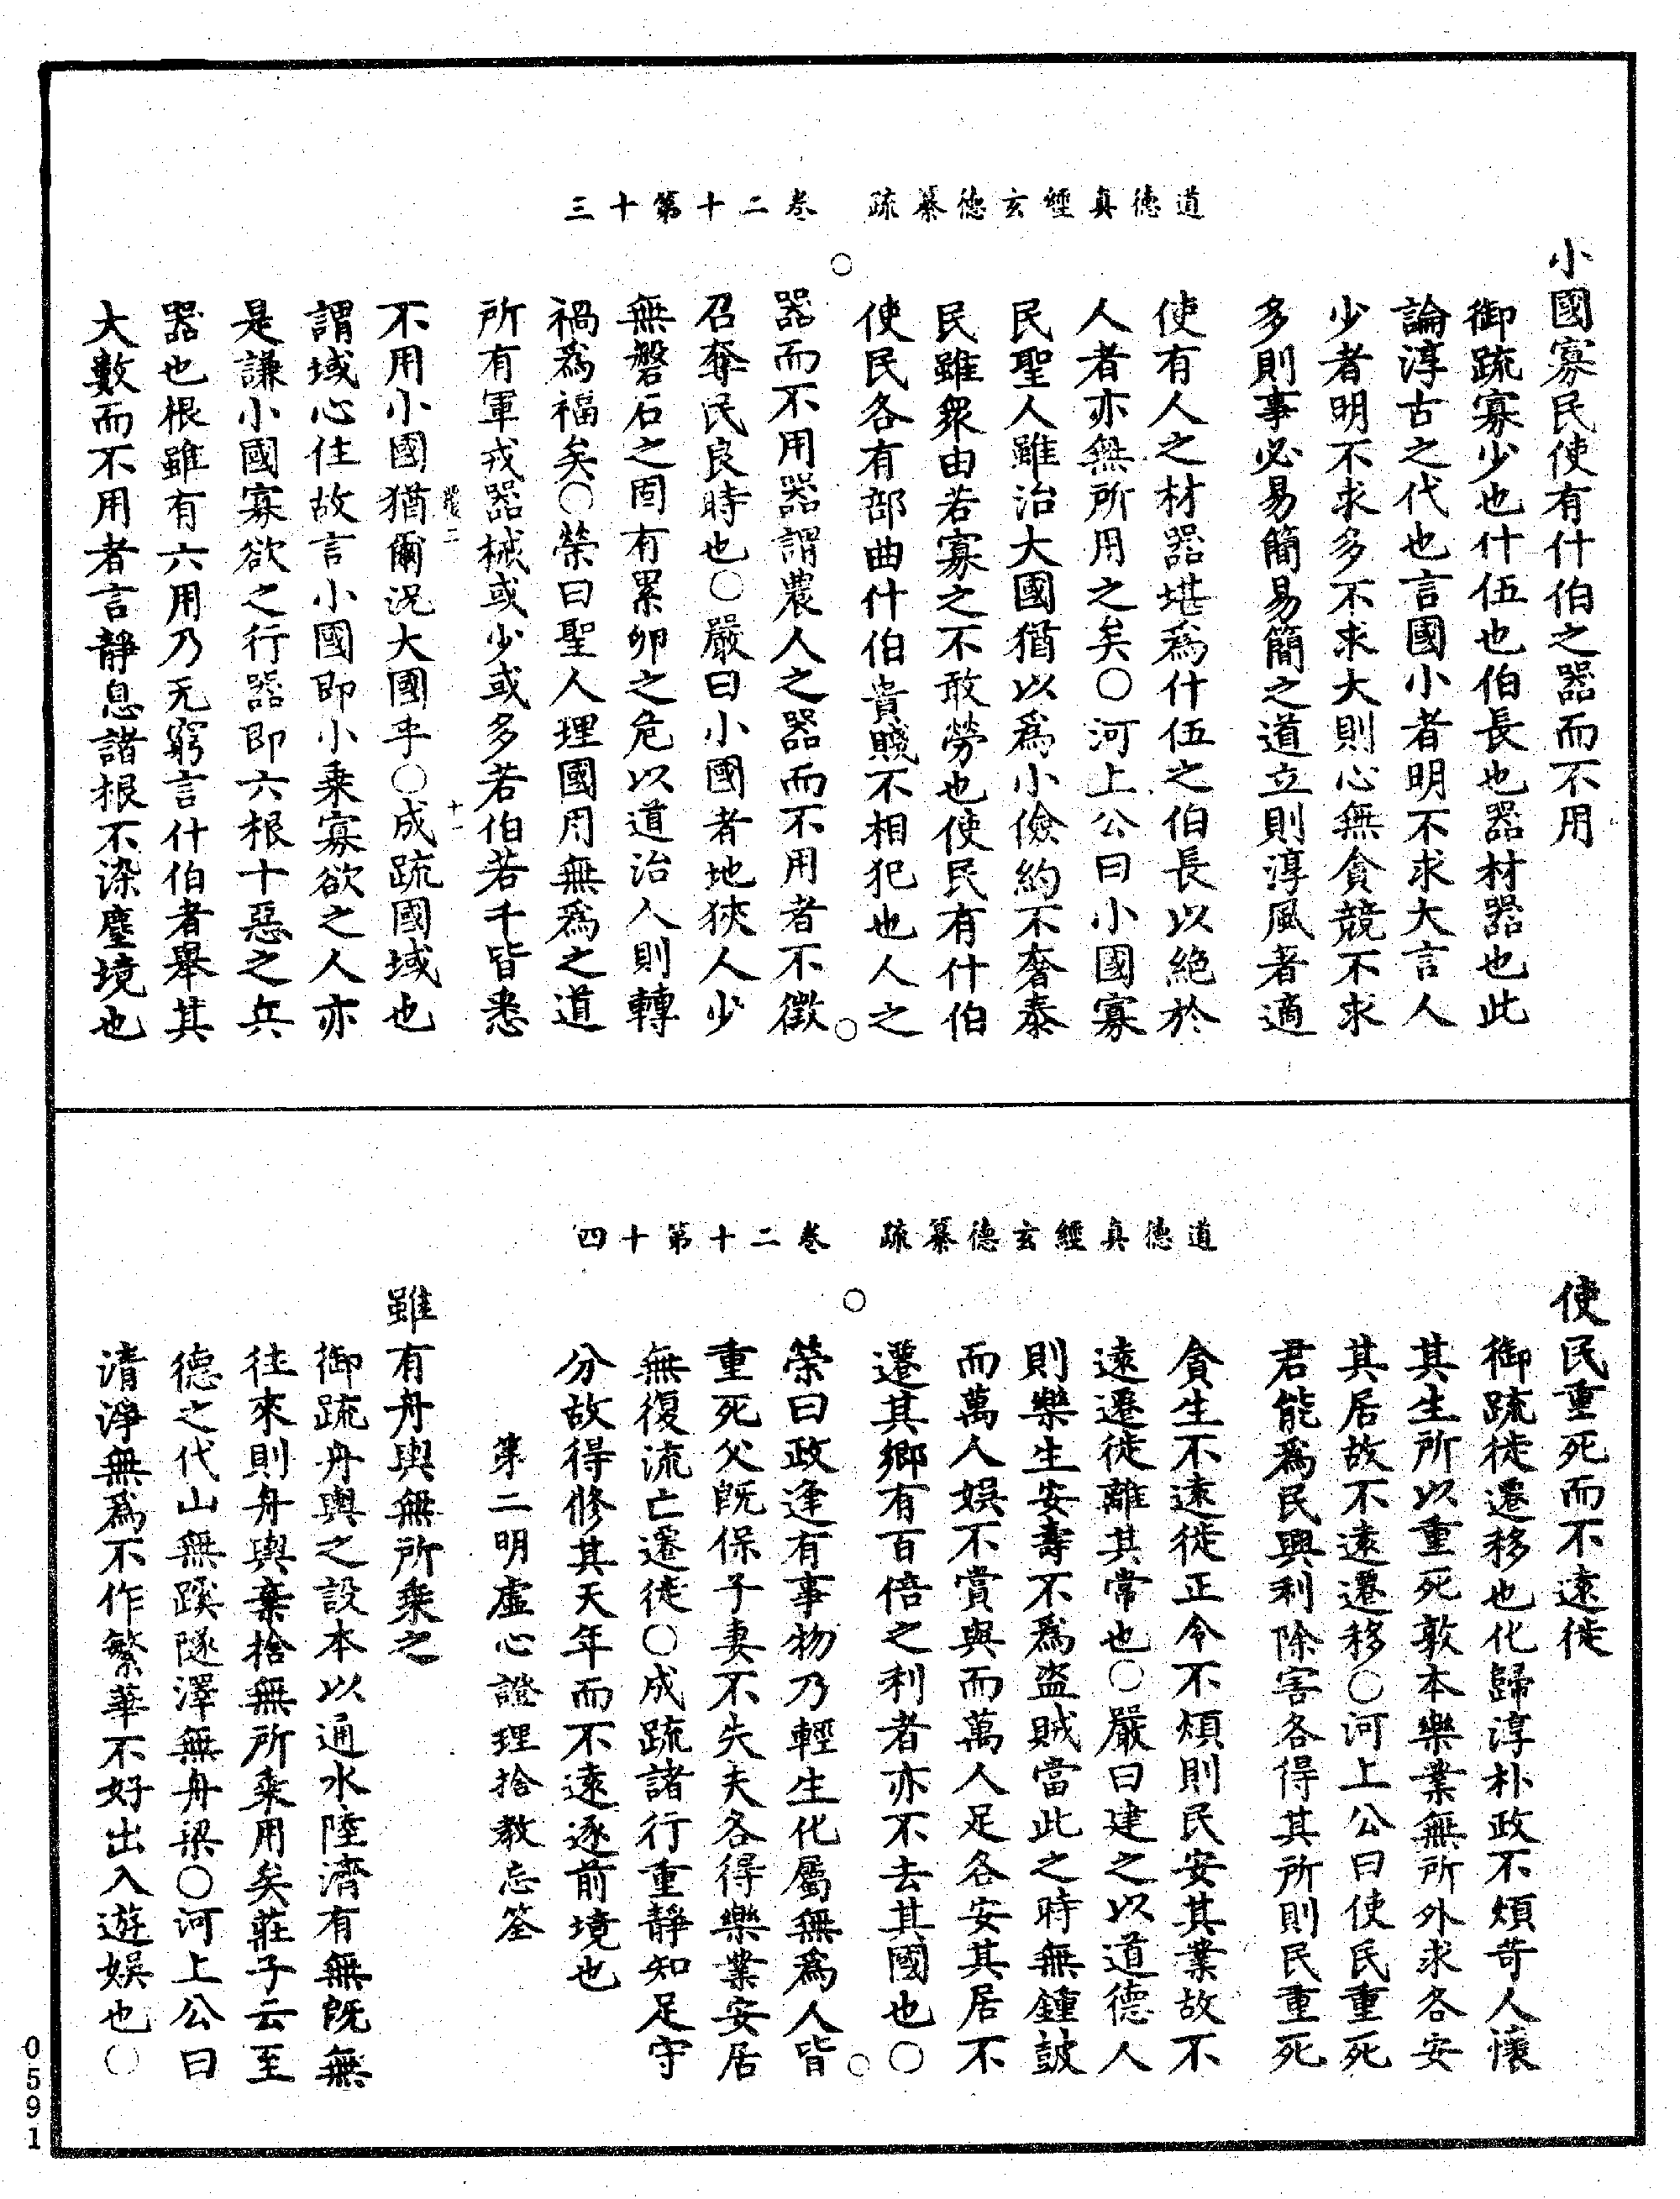 道德真經玄德纂疏　卷二十第十三
小國寡民使有什伯之器而不用
御疏寡少也什伍也伯長也器材器也此
論淳古之代也言國小者明不求大言人
少者明不求多不求大則心無貪競不求
多則事必易簡易簡之道立則淳風著適
使有人之材器堪爲什伍之伯長以絶於
人者亦無所用之矣○河上公曰小國寡
民聖人雖治大國猶以爲小儉約不奢泰
民雖衆由若寡之不敢勞也使民有什伯
使民各有部曲什伯貴賤不相犯也人之
器而不用器謂農人之器而不用者不徵
召奪民良時也○嚴曰小國者地狹人少
無磐石之固有累卵之危以道治人則轉
禍爲福矣○榮曰聖人理國用無爲之道
所有軍戎器械或少或多若伯若千皆悉
不用小國猶爾況大國乎○成疏國域也
謂域心住故言小國即小乗寡欲之人亦
是謙小國寡欲之行器即六根十惡之兵
器也根雖有六用乃无窮言什伯者舉其
大數而不用者言靜息諸根不染塵境也
道德真經玄德纂疏　卷二十第十四
使民重死而不遠徙
御疏徙遷移也化歸淳朴政不煩苛人懷
其生所以重死敦本樂業無所外求各安
其居故不遠遷移○河上公曰使民重死
君能爲民興利除害各得其所則民重死
貪生不遠徙正令不煩則民安其業故不
遠遷徙離其常也○嚴曰建之以道德人
則樂生安壽不爲盜賊當此之時無鍾鼓
而萬人娛不賞與而萬人足各安其居不
遷其鄉有百倍之利者亦不去其國也○
榮曰政逢有事物乃輕生化屬無爲人皆
重死父既保子妻不失夫各得樂業安居
無復流亡遷徙○成疏諸行重靜知足守
分故得修其天年而不遠逐前境也
第二明虛心證理捨教忘筌
雖有舟輿無所乗之
御疏舟輿之設本以通水陸濟有無既無
往來則舟輿棄捨無所乗用矣莊子云至
德之代山無蹊隧澤無舟梁○河上公曰
清淨無爲不作繁華不好出入遊娛也○
0591